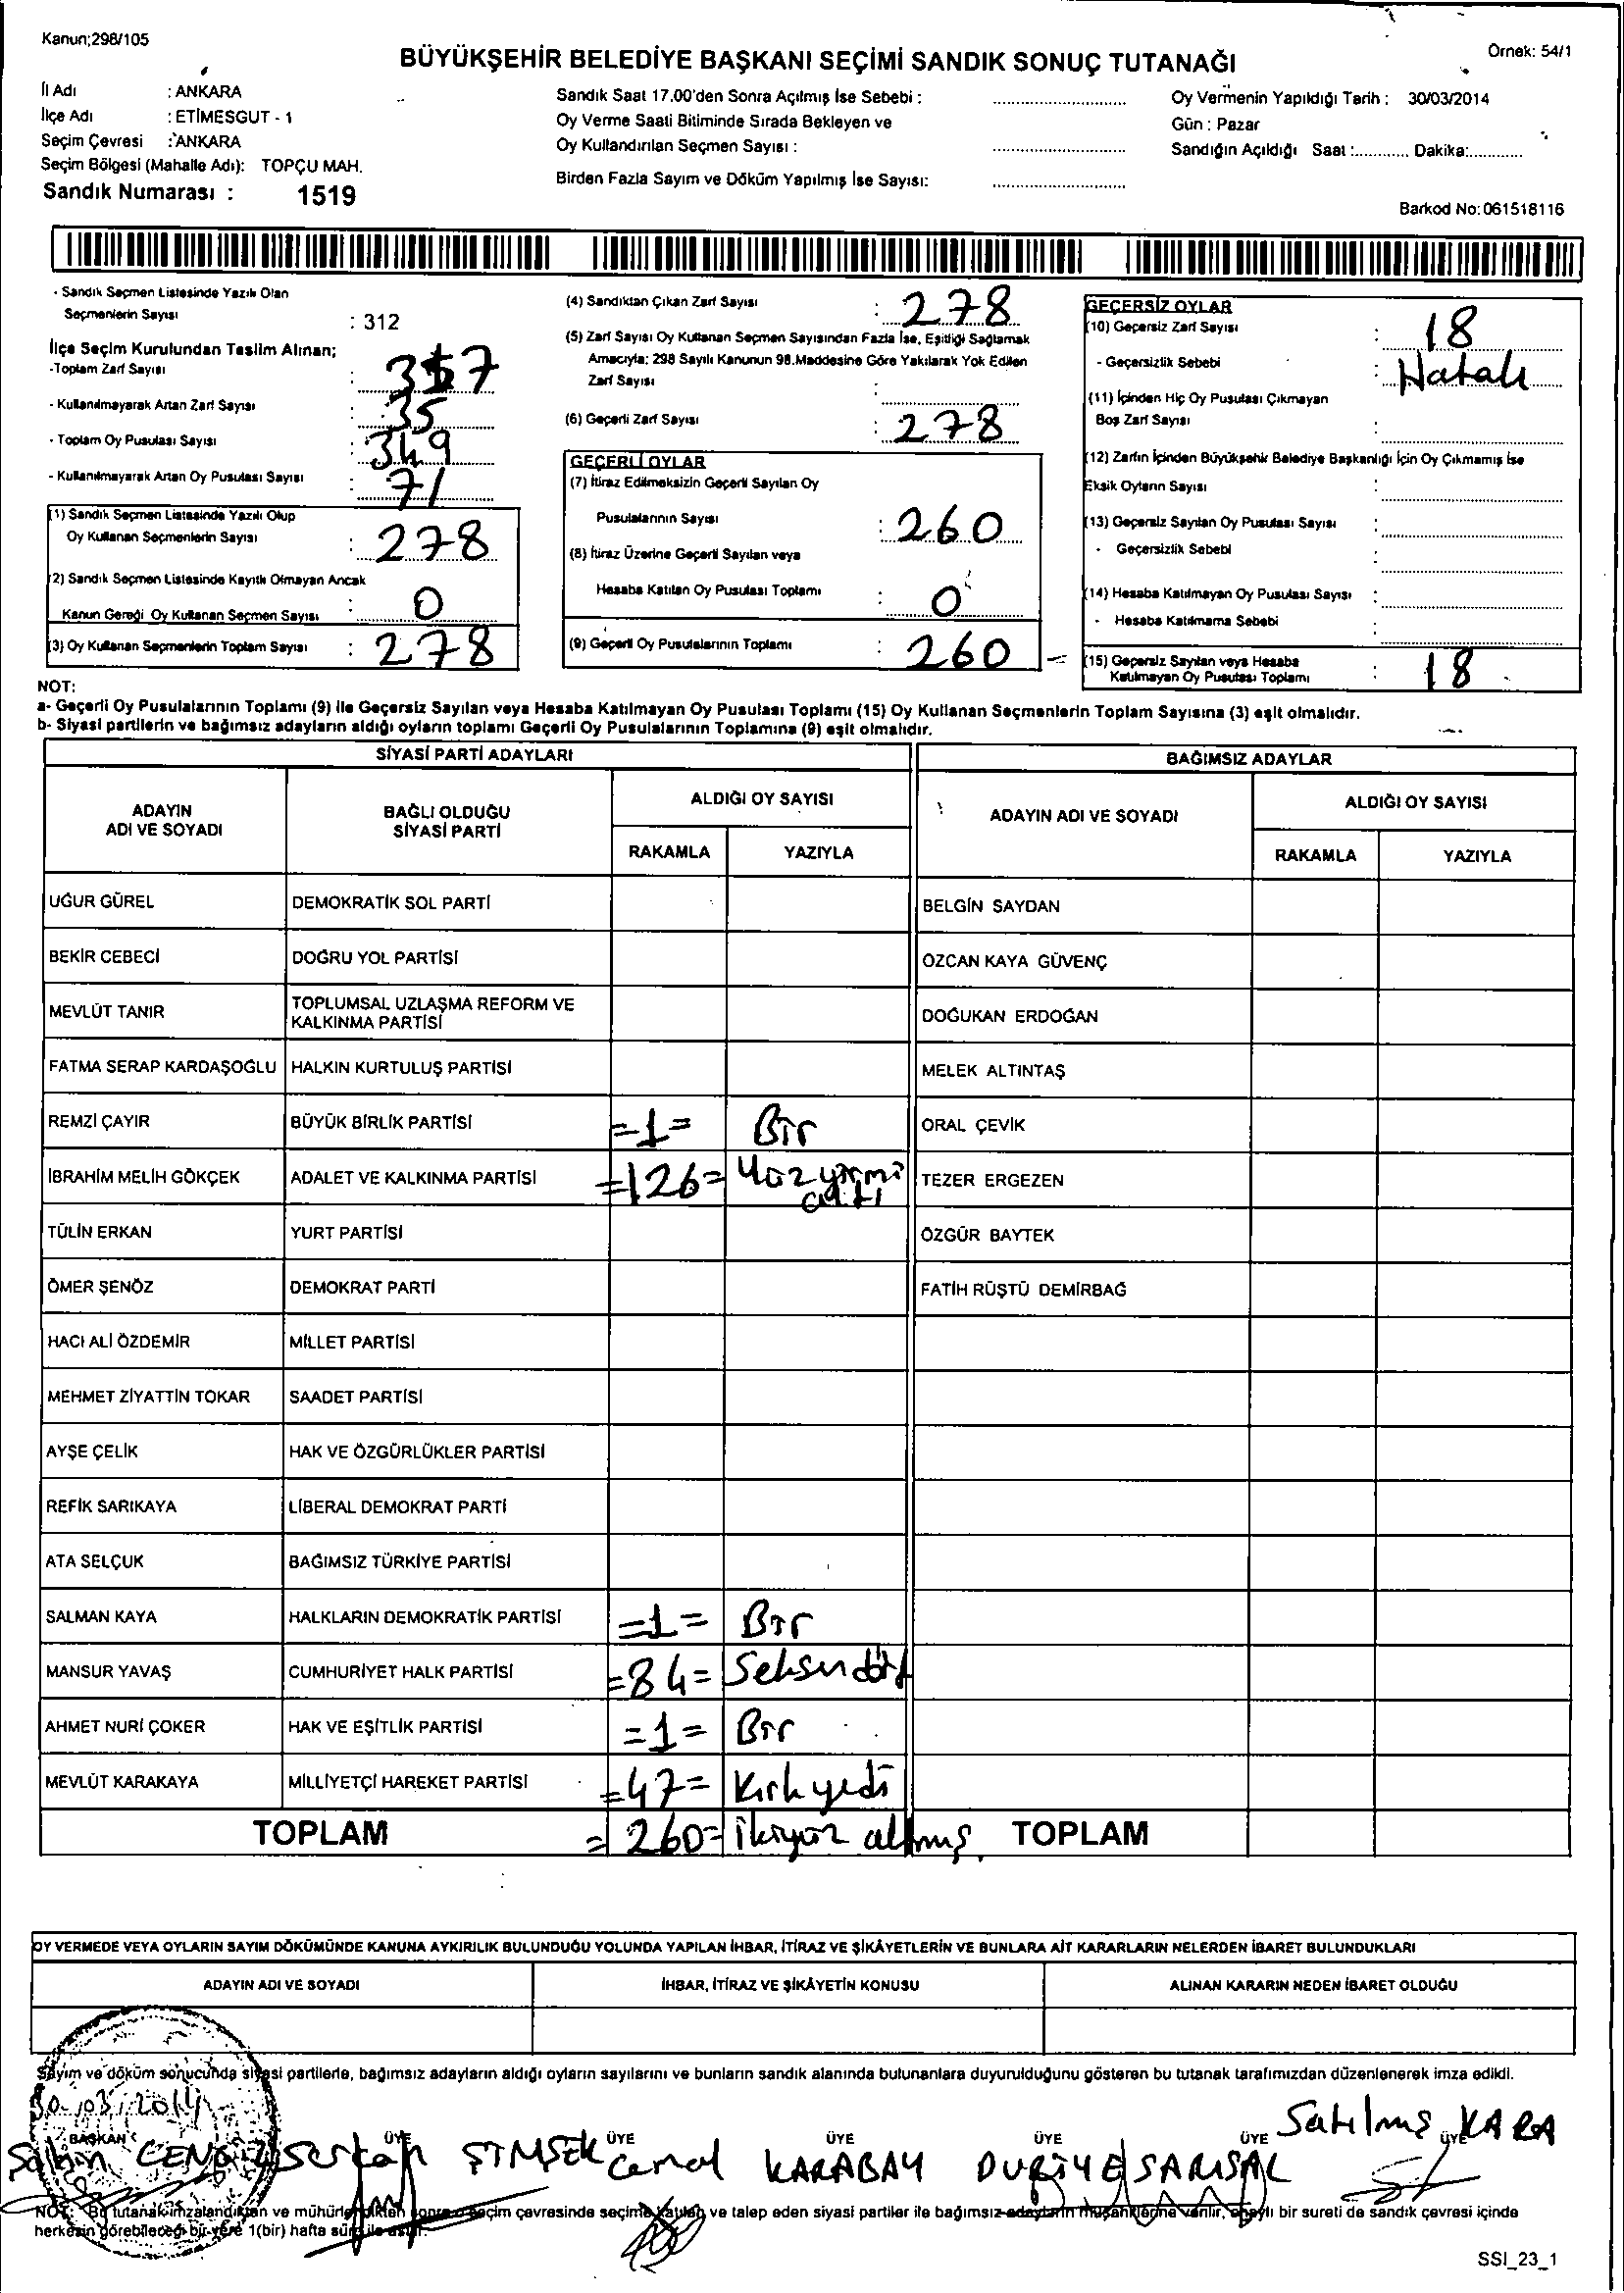 Kanun;298/105
Örnek: 54/1
BÜYÜKŞEHİR BELEDİYE BAŞKANI SEÇİMİ SANDIK SONUÇ TUTANAĞI
İl Adı : ANKARA
İlçe Adı : ETİMESGUT - 1
Seçim Çevresi : ANKARA
Seçim Bölgesi (Mahalle Adı): TOPÇU MAH.
Sandık Numarası : 1519
Sandık Saat 17.00'den Sonra Açılmış İse Sebebi :
Oy Verme Saati Bitiminde Sırada Bekleyen ve
Oy Kullandırılan Seçmen Sayısı :
Birden Fazla Sayım ve Döküm Yapılmış İse Sayısı:
Oy Vermenin Yapıldığı Tarih : 30/03/2014
Gün : Pazar
Sandığın Açıldığı Saat :............ Dakika:............
Barkod No:061518116
- Sandık Seçmen Listesinde Yazılı Olan
Seçmenlerin Sayısı : 312
İlçe Seçim Kurulundan Teslim Alınan;
-Toplam Zarf Sayısı :
- Kullanılmayarak Artan Zarf Sayısı : 35
- Toplam Oy Pusulası Sayısı : 349
- Kullanılmayarak Artan Oy Pusulası Sayısı : 71
(1) Sandık Seçmen Listesinde Yazılı Olup
Oy Kullanan Seçmenlerin Sayısı : 278
(2) Sandık Seçmen Listesinde Kayıtlı Olmayan Ancak
Kanun Gereği Oy Kullanan Seçmen Sayısı : 0
(3) Oy Kullanan Seçmenlerin Toplam Sayısı : 278
(4) Sandıktan Çıkan Zarf Sayısı : 278
(5) Zarf Sayısı Oy Kullanan Seçmen Sayısından Fazla İse, Eşitliği Sağlamak
Amacıyla; 298 Sayılı Kanunun 98.Maddesine Göre Yakılarak Yok Edilen
Zarf Sayısı :
(6) Geçerli Zarf Sayısı : 278
GEÇERLİ OYLAR
(7) İtiraz Edilmeksizin Geçerli Sayılan Oy
Pusulalarının Sayısı : 260
(8) İtiraz Üzerine Geçerli Sayılan veya
Hesaba Katılan Oy Pusulası Toplamı : 0
(9) Geçerli Oy Pusulalarının Toplamı : 260
GEÇERSİZ OYLAR
(10) Geçersiz Zarf Sayısı : 18
- Geçersizlik Sebebi : Hatalı
(11) İçinden Hiç Oy Pusulası Çıkmayan
Boş Zarf Sayısı :
(12) Zarfın İçinden Büyükşehir Belediye Başkanlığı İçin Oy Çıkmamış İse
Eksik Oyların Sayısı :
(13) Geçersiz Sayılan Oy Pusulası Sayısı :
- Geçersizlik Sebebi :
(14) Hesaba Katılmayan Oy Pusulası Sayısı :
- Hesaba Katılmama Sebebi :
(15) Geçersiz Sayılan veya Hesaba
Katılmayan Oy Pusulası Toplamı : 18
NOT:
a- Geçerli Oy Pusulalarının Toplamı (9) ile Geçersiz Sayılan veya Hesaba Katılmayan Oy Pusulası Toplamı (15) Oy Kullanan Seçmenlerin Toplam Sayısına (3) eşit olmalıdır.
b- Siyasi partilerin ve bağımsız adayların aldığı oyların toplamı Geçerli Oy Pusulalarının Toplamına (9) eşit olmalıdır.
SİYASİ PARTİ ADAYLARI
BAĞIMSIZ ADAYLAR
ADAYIN
ADI VE SOYADI
BAĞLI OLDUĞU
SİYASİ PARTİ
ALDIĞI OY SAYISI
RAKAMLA YAZIYLA
ADAYIN ADI VE SOYADI
ALDIĞI OY SAYISI
RAKAMLA YAZIYLA
UĞUR GÜREL DEMOKRATİK SOL PARTİ BELGİN SAYDAN
BEKİR CEBECİ DOĞRU YOL PARTİSİ ÖZCAN KAYA GÜVENÇ
MEVLÜT TANIR TOPLUMSAL UZLAŞMA REFORM VE
KALKINMA PARTİSİ DOĞUKAN ERDOĞAN
FATMA SERAP KARDAŞOĞLU HALKIN KURTULUŞ PARTİSİ MELEK ALTINTAŞ
REMZİ ÇAYIR BÜYÜK BİRLİK PARTİSİ =1= Bir ORAL ÇEVİK
İBRAHİM MELİH GÖKÇEK ADALET VE KALKINMA PARTİSİ =126= Yüz yirmi
altı TEZER ERGEZEN
TÜLİN ERKAN YURT PARTİSİ ÖZGÜR BAYTEK
ÖMER ŞENÖZ DEMOKRAT PARTİ FATİH RÜŞTÜ DEMİRBAĞ
HACI ALİ ÖZDEMİR MİLLET PARTİSİ
MEHMET ZİYATTİN TOKAR SAADET PARTİSİ
AYŞE ÇELİK HAK VE ÖZGÜRLÜKLER PARTİSİ
REFİK SARIKAYA LİBERAL DEMOKRAT PARTİ
ATA SELÇUK BAĞIMSIZ TÜRKİYE PARTİSİ
SALMAN KAYA HALKLARIN DEMOKRATİK PARTİSİ =1= Bir
MANSUR YAVAŞ CUMHURİYET HALK PARTİSİ =84= Seksen dört
AHMET NURİ ÇOKER HAK VE EŞİTLİK PARTİSİ =1= Bir
MEVLÜT KARAKAYA MİLLİYETÇİ HAREKET PARTİSİ =47= Kırk yedi
TOPLAM =260= ikiyüz altmış TOPLAM
OY VERMEDE VEYA OYLARIN SAYIM DÖKÜMÜNDE KANUNA AYKIRILIK BULUNDUĞU YOLUNDA YAPILAN İHBAR, İTİRAZ VE ŞİKÂYETLERİN VE BUNLARA AİT KARARLARIN NELERDEN İBARET BULUNDUKLARI
ADAYIN ADI VE SOYADI İHBAR, İTİRAZ VE ŞİKÂYETİN KONUSU ALINAN KARARIN NEDEN İBARET OLDUĞU
Sayım ve döküm sonucunda siyasi partilerle, bağımsız adayların aldığı oyların sayılarını ve bunların sandık alanında bulunanlara duyurulduğunu gösteren bu tutanak tarafımızdan düzenlenerek imza edildi.
30.03.2014
BAŞKAN ÜYE ÜYE ÜYE ÜYE ÜYE ÜYE
CENGİZ Serkan ŞİMŞEK Cemal KARABAY DURİYE SARISAL Satılmış KARA
NOT: Bu tutanak imzalandıktan ve mühürlendikten sonra seçim çevresinde seçime katılan ve talep eden siyasi partiler ile bağımsız adayların müşahitlerine verilir, onaylı bir sureti de sandık çevresi içinde
herkesin görebileceği bir yere 1(bir) hafta süre ile asılır.
SSI_23_1